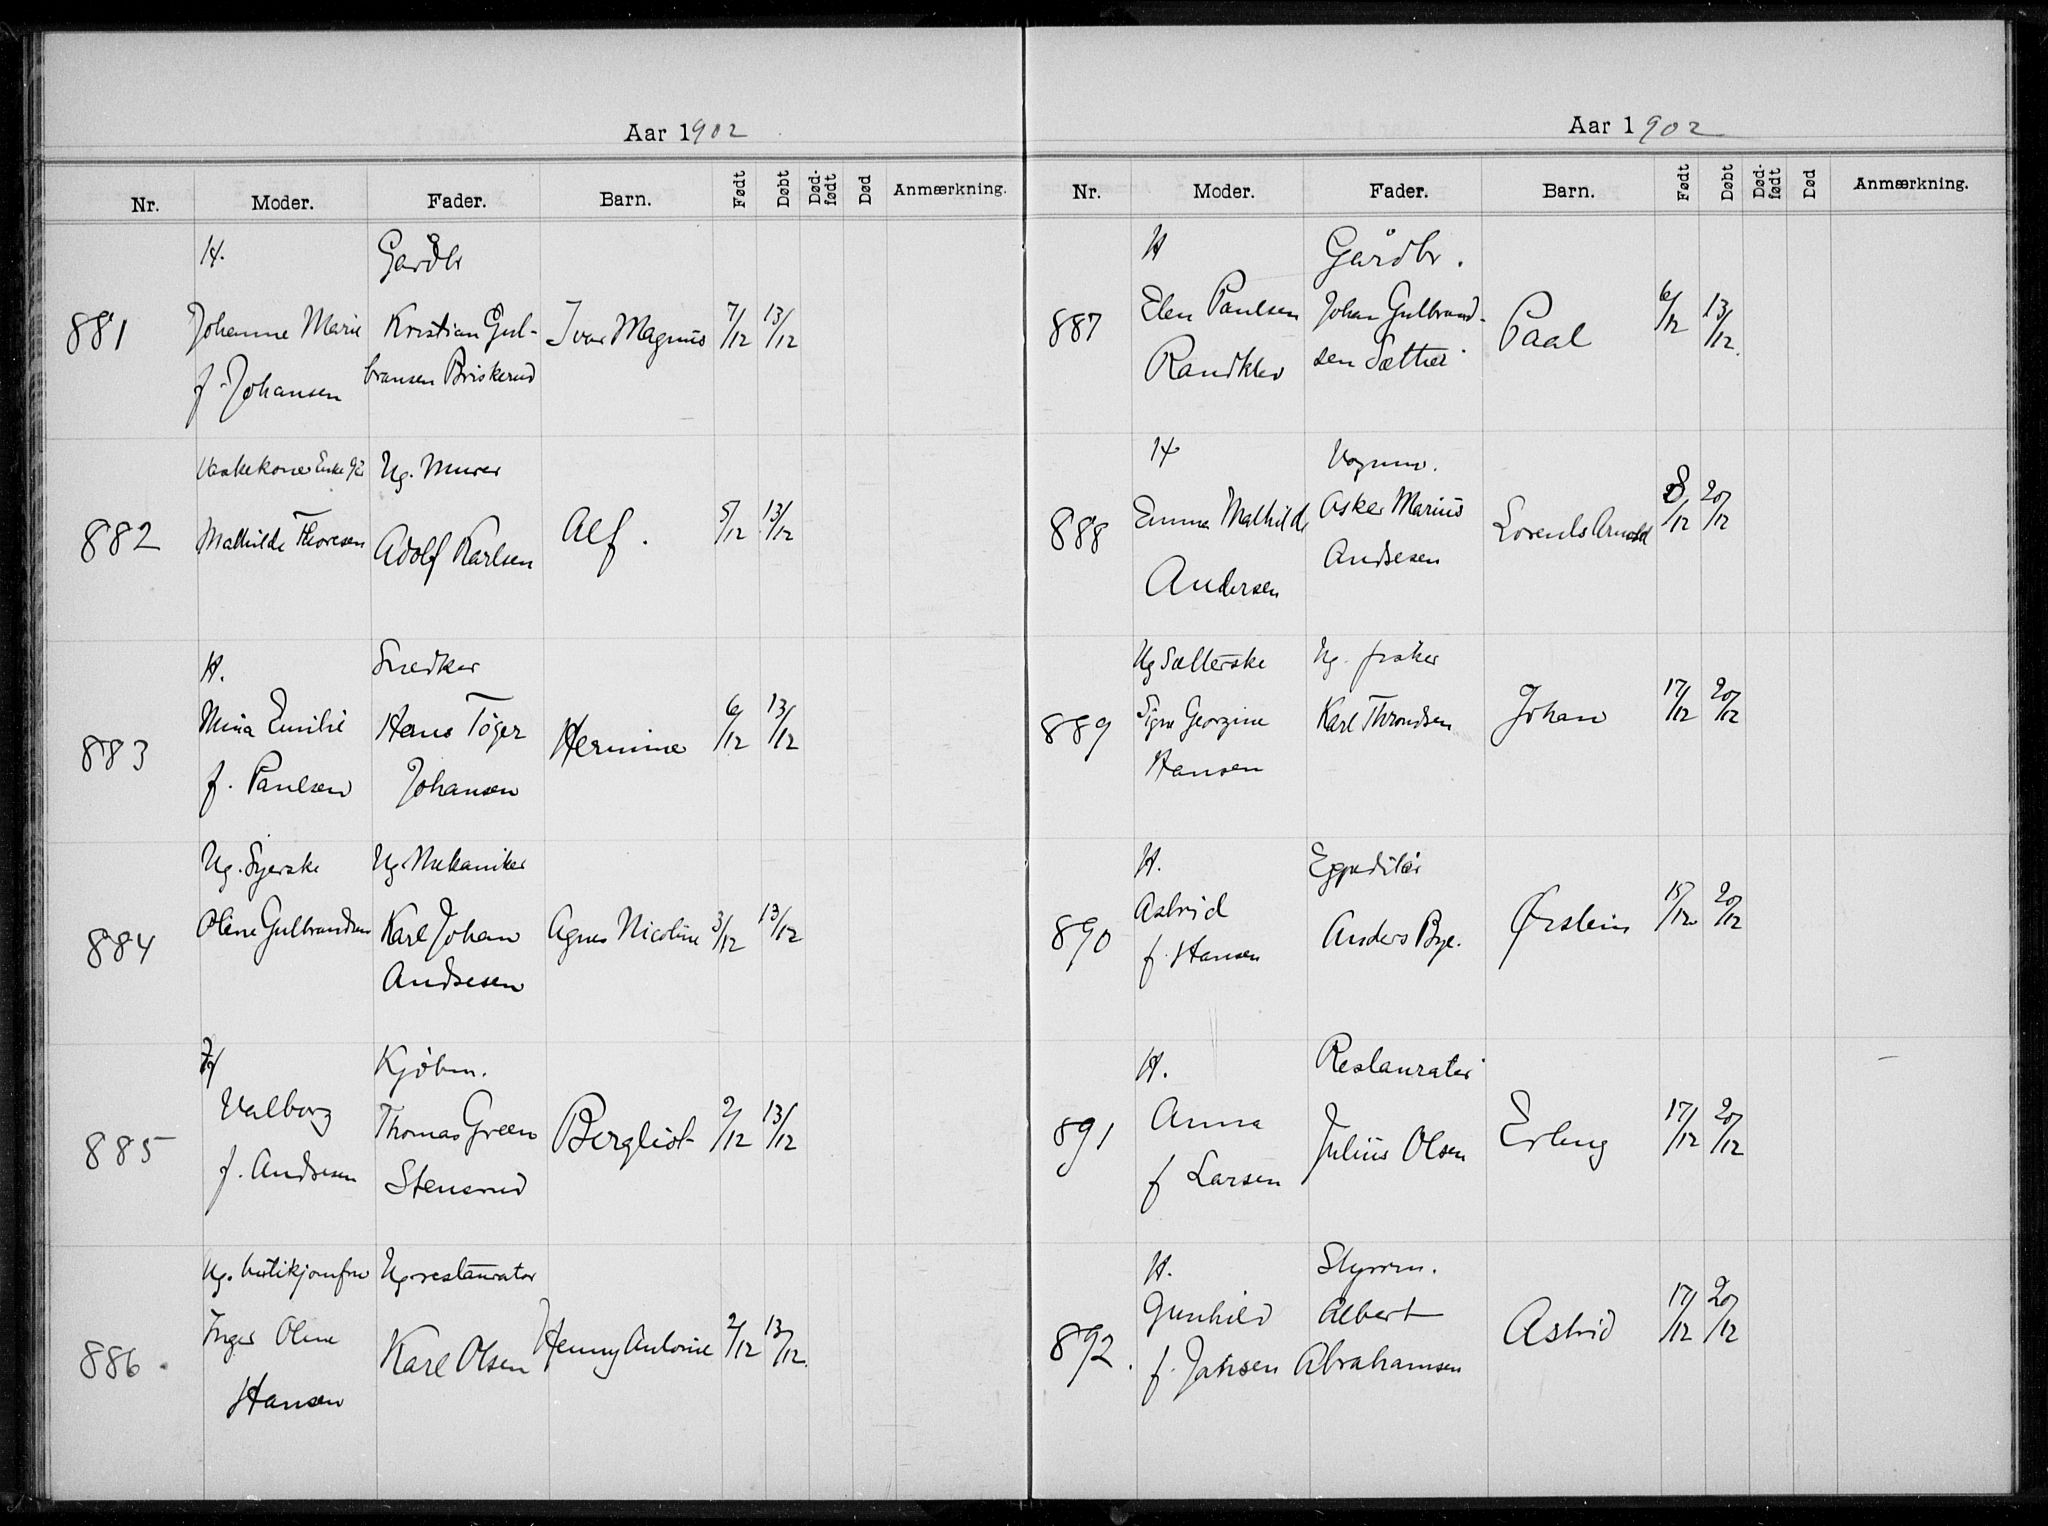 Aar 1902
Nr. Moder. Fader. Barn. Født Døbt Død-født Død Anmærkning.
H. Gårdbr
881 Johanne Marie Kristian Gul- Ivar Magnus 7/12 13/12
f. Johansen bransen Briskerud
Vaskekone Enke Ug. Murer
882 Mathilde Thoresen Adolf Karlsen Alf. 5/12 13/12
H. Snedker
883 Mina Emilie Hans Töger Hermine 6/12 13/12
f. Paulsen Johansen
Ug. Syerske Ug. Mekaniker
884 Oline Gulbrandsen Karl Johan Agnes Nicoline 3/12 13/12
Andresen
H Kjöbm.
885 Valborg Thomas Green Bergliot 2/12 13/12
f. Andresen Stensrud
Ug. butikjomfru Ug. restaurator
886. Inger Oline Karl Olsen Henny Antonie 2/12 13/12.
Hansen
Aar 1902
Nr. Moder. Fader. Barn. Født Døbt Død-født Død Anmærkning.
H Gårdbr.
887 Elen Paulsen Johan Gulbrand- Paal 6/12 13/12.
Randklev sen Sæther
H Vognm.
888 Emma Mathilde Asker Marius Lorents Arnold 8/12 20/12
Andersen Andresen
Ug Sætterske Ug.
889 Signe Georgine Karl Throndsen Johan 17/12 20/12
Hansen
H. Expeditör
890 Astrid Anders Bye. Ørstein 15/12 20/12
f. Hansen
H. Restauratör
891 Anna Julius Olsen Erling 17/12 20/12
f Larsen
H. Styrm.
892. Gunhild Albert Astrid 17/12 20/12
f. Jansen Abrahamsen